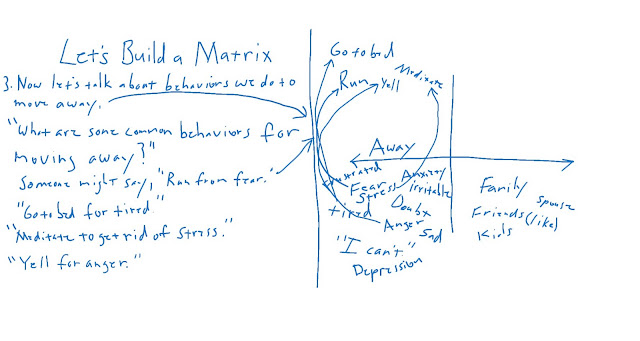 Let's Build a Matrix
3. Now let's talk about behaviors we do to
move away.
"What are some common behaviors for
moving away?"
Someone might say, "Run from fear."
"Go to bed for tired."
"Meditate to get rid of stress."
"Yell for anger."
Go to bed
Run
Yell
Meditate
Away
frustrated
Fear
Stress
Anxiety
irritable
tired
Doubt
Anger
Sad
"I can't."
Depression
Family
Spouse
Friends (like)
Kids